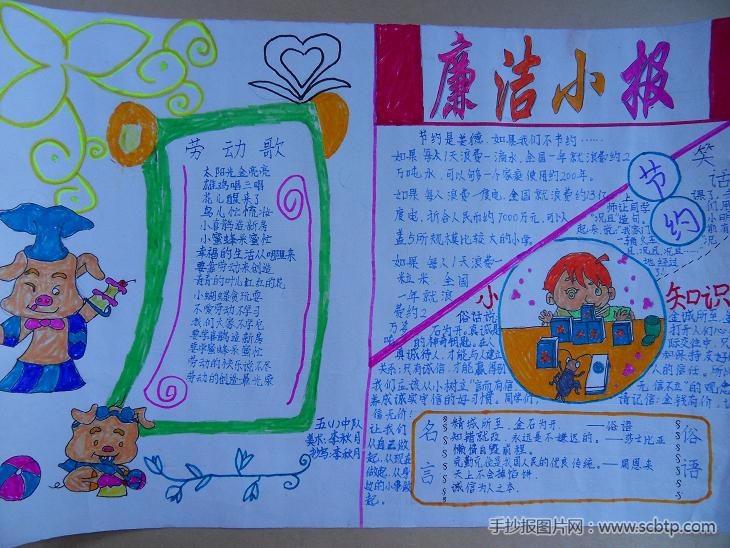 劳动歌
太阳光金亮亮
雄鸡唱三唱
花儿醒来了
鸟儿忙梳妆
小喜鹊造新房
小蜜蜂采蜜忙
幸福的生活从哪里来
要靠劳动来创造
青青的叶儿红红的花
小蝴蝶贪玩耍
不爱劳动不学习
我们大家不学它
要学喜鹊造新房
要学蜜蜂采蜜忙
劳动的快乐说不尽
劳动的创造最光荣
五(1)中队
美术:李秋月
抄写:李秋月
廉洁小报
节约是美德,如果我们不节约……
如果每人1天浪费一滴水,全国一年就浪费约2
万吨水,可以够一个家庭使用约200年。
如果每人浪费一度电,全国就浪费约13亿
度电,折合人民币约7000万元,可以
盖上所规模比较大的小学。
如果每人1天浪费一
粒米,全国
一年就浪
费约2
万
节约
笑话
师让同学
"况且"造句。
小知识
俗话说:
石为开。真诚是
的神奇钥匙。在人
真诚待人,才能与人建立
关系:只有诚信,才能赢得别
我们应该从小树立"言而有信
养成诚实守信的好习惯。同学们,
信无价!
让我们
从自己做
起,从现在
做起,从身
边的小事做
起。
金诚所至,金
打开人们心
际交往中,只
和保持友好
人的信任。所以
元信不立"的观念
请记信:金钱有价,诚
名言
俗语
精诚所至,金石为开。——俗语
知错就改,永远是不嫌迟的。——莎士比亚
懒惰自毁前程。
克勤克俭是我国人民的优良传统。——周恩来
天上不会掉馅饼。
诚信为人之本。
手抄报图片网:www.scbtp.com